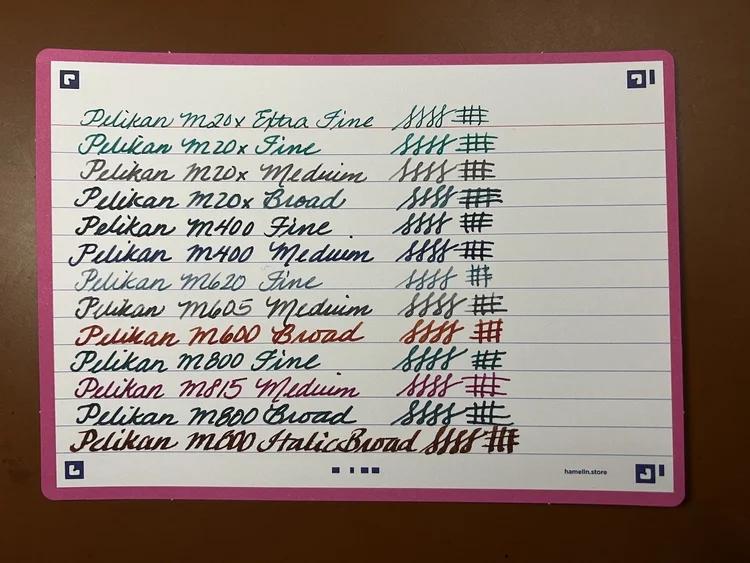 Pelikan M20x Extra Fine
Pelikan M20x Fine
Pelikan M20x Medium
Pelikan M20x Broad
Pelikan M400 Fine
Pelikan M400 Medium
Pelikan M620 Fine
Pelikan M605 Medium
Pelikan M600 Broad
Pelikan M800 Fine
Pelikan M815 Medium
Pelikan M800 Broad
Pelikan M800 Italic Broad
hamelin.store